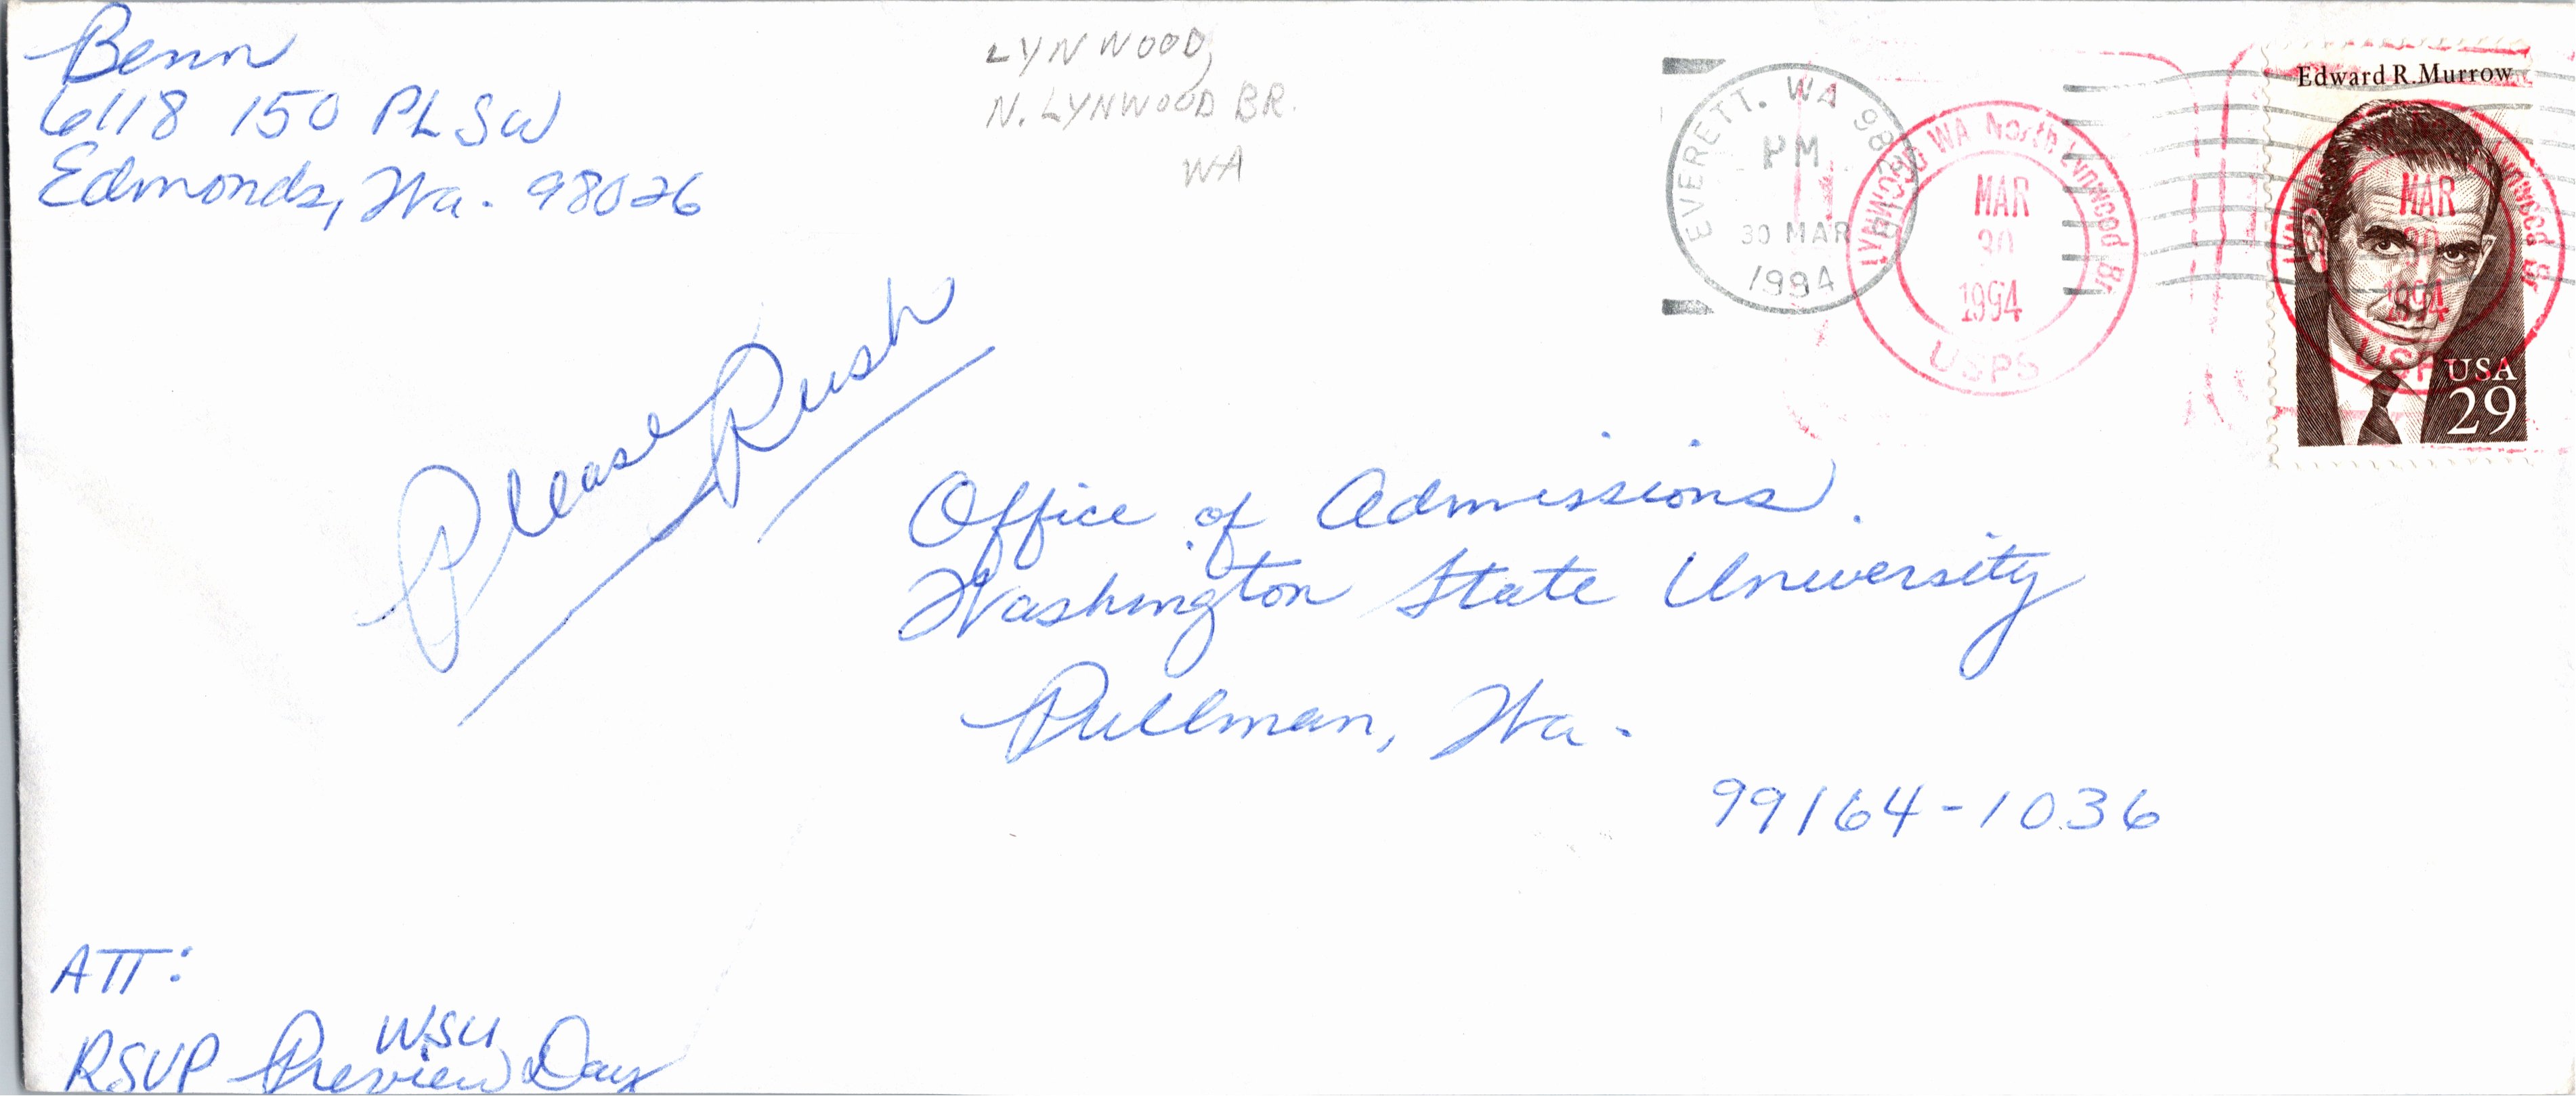 Benn
6118 150 PL SW
Edmonds, Wa. 98026
LYNWOOD,
N. LYNWOOD BR.
WA
EVERETT. WA
PM
30 MAR
1994
LYNNWOOD WA North Lynnwood Br
MAR
30
1994
USPS
Edward R. Murrow
Lynnwood Br
MAR
30
1994
USA
29
Please Rush
Office of Admissions.
Washington State University
Pullman, Wa.
99164-1036
ATT:
WSU
RSVP Preview Day